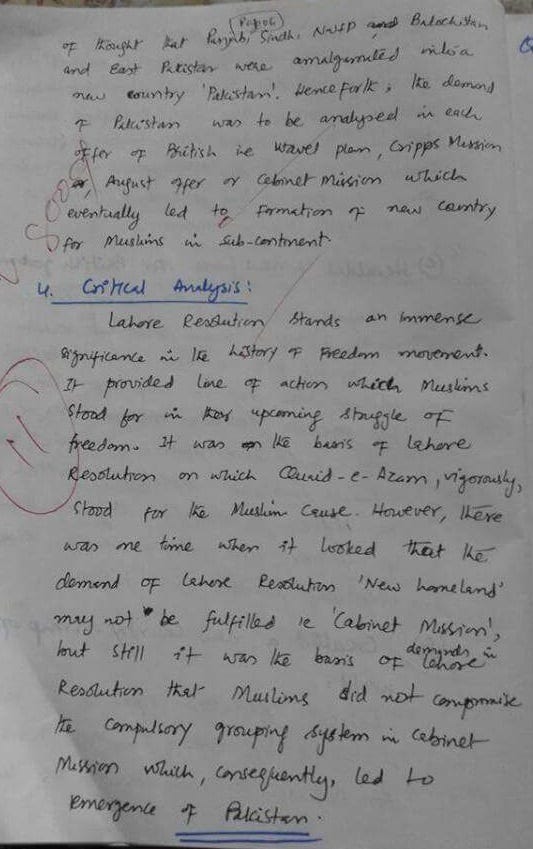 (Papou)
of thought that Punjab, Sindh, NWFP and Balochistan
and East Pakistan were amalgamated into a
new country 'Pakistan'. Henceforth, the demand
of Pakistan was to be analysed in each
offer of British i.e Wavel plan, Cripps Mission
or, August offer or Cabinet Mission which
eventually led to formation of new country
for Muslims in Sub-continent.
Good
4. Critical Analysis:
Lahore Resolution stands an immense
significance in the history of Freedom movement.
It provided line of action which Muslims
stood for in their upcoming struggle of
freedom. It was on the basis of Lahore
11
Resolution on which Quaid-e-Azam, vigorously,
stood for the Muslim Cause. However, there
was one time when it looked that the
demand of Lahore Resolution 'New homeland'
may not be fulfilled ie 'Cabinet Mission',
but still it was the basis of demands in Lahore
Resolution that Muslims did not compromise
the compulsory grouping system in Cabinet
Mission which, consequently, led to
emergence of Pakistan.